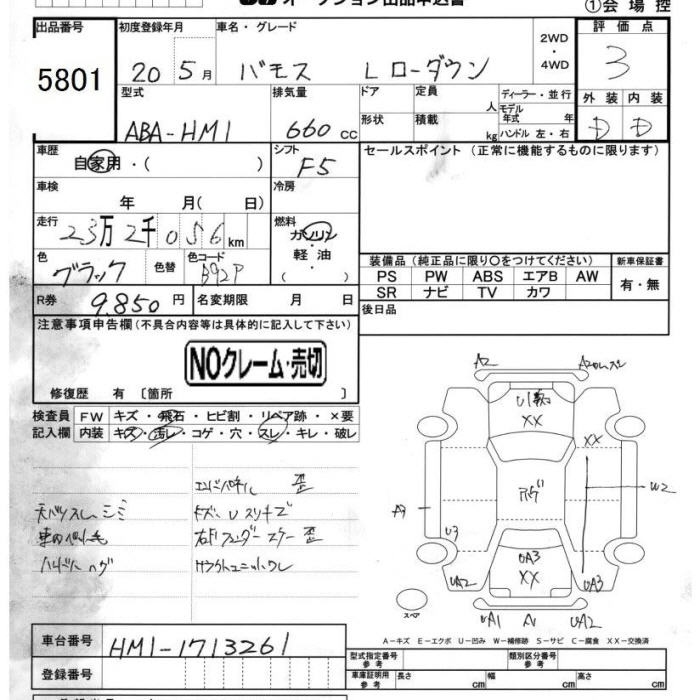 オークション出品申込書
①会場控
出品番号 5801
初度登録年月 20 5月
車名・グレード バモス Lローダウン
2WD・4WD
評価点 3
外装 D 内装 D
型式 ABA-HM1
排気量 660cc
ドア 形状
定員 人
積載 kg
ディーラー・並行
モデル年式 年
ハンドル 左・右
車歴 自家用・( )
シフト F5
セールスポイント (正常に機能するものに限ります)
車検 年 月(日)
冷房
走行 23万2千056km
燃料 ガソリン 軽油・( )
色 ブラック 色替
色コード B92P
装備品(純正品に限り〇をつけてください)
新車保証書 有・無
PS PW ABS エアB AW
SR ナビ TV カワ
R券 9,850円
名変期限 月 日
後日品
注意事項申告欄(不具合内容等は具体的に記入して下さい)
NOクレーム・売切
修復歴 有 〔箇所 〕
検査員記入欄
FW キズ・飛石・ヒビ割・リペア跡・×要
内装 キズ・汚レ・コゲ・穴・スレ・キレ・破レ
天バリスレ シミ
ハンドルハゲ
キズ・Uスリキズ
右Fフェンダーステー歪
A2
XX
XX
W2
U3
UA3
XX
UA2
UA3
UA1
UA2
スペア
A−キズ E−エクボ U−凹み W−補修跡 S−サビ C−腐食 XX−交換済
車台番号 HM1-1713261
登録番号
型式指定番号 参考
類別区分番号 参考
車庫証明用 参考
長さ cm 幅 cm 高さ cm